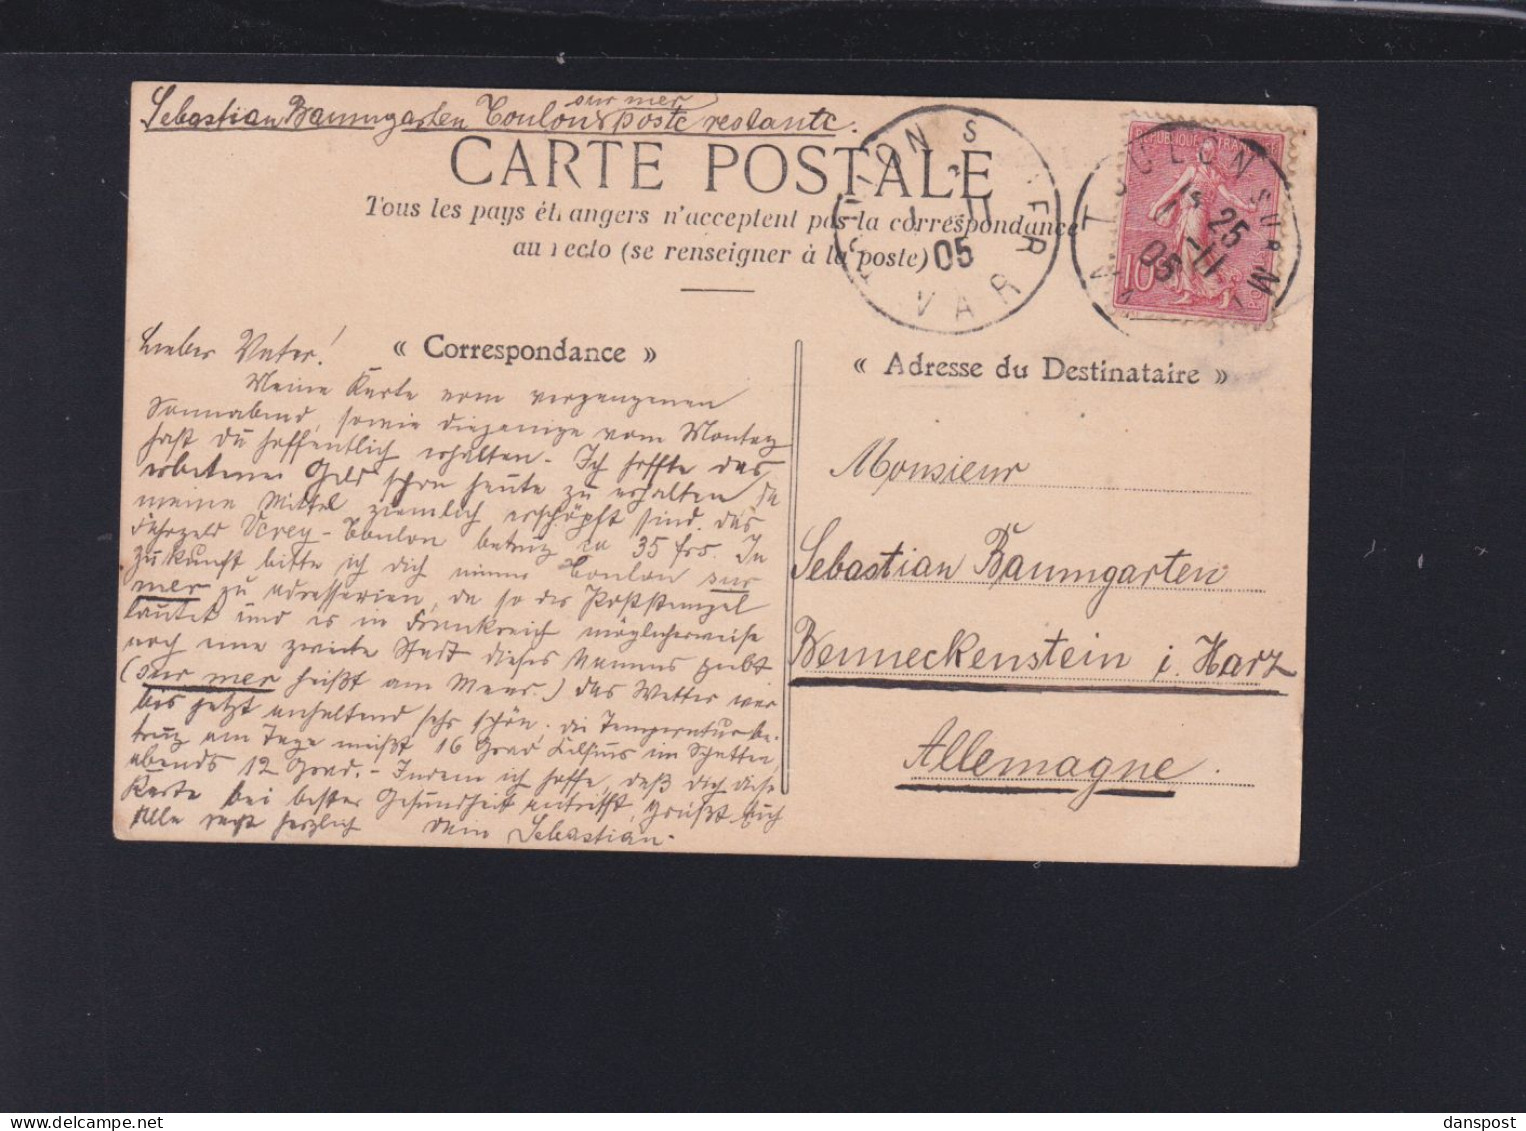 sur mer
Sebastian Baumgarten Toulon poste restante.
CARTE POSTALE
Tous les pays étrangers n'acceptent pas la correspondance
au recto (se renseigner à la poste)
VAR
1 11
05
TOULON S MER
TOULON SUR MER
25
11
05
RÉPUBLIQUE FRANÇAISE
10
« Correspondance »
Lieber Vater!
Meine Karte vom vergangenen
Sonnabend, sowie diejenige vom Montag
hast Du hoffentlich erhalten. Ich hoffte das
erbetene Geld schon heute zu erhalten da
meine Mittel ziemlich erschöpft sind. Das
Fahrgeld - Toulon betrug ca 35 frs. In
Zukunft bitte ich dich immer Toulon sur
mer zu adressieren, da so der Poststempel
lautet und es in Frankreich möglicherweise
noch eine zweite Stadt dieses Namens gebt
(sur mer heißt am Meer.) Das Wetter war
bis jetzt anhaltend sehr schön, die Temperatur be-
trug am Tage meißt 16 Grad Celsius im Schatten,
abends 12 Grad. - Indem ich hoffe, daß dich diese
Karte bei bester Gesundheit antrifft, grüßt Euch
Alle recht herzlich Dein Sebastian.
« Adresse du Destinataire »
Monsieur
Sebastian Baumgarten
Benneckenstein i. Harz
Allemagne.
danspost